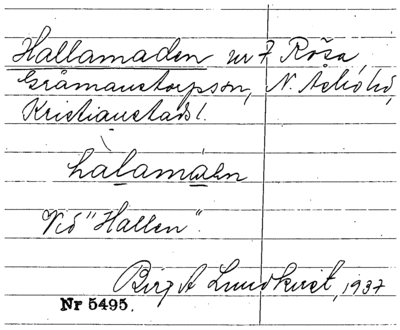 Hallamaden nr 7 Röša,
Gråmanstorpson, N. Åsbo hd,
Kristianstads l.
hàlamàen
Vid "Hallen".
Birgit Lundkvist, 1937
Nr 5495.